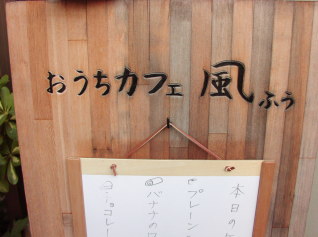 おうちカフェ 風 ふう
本日の
プレーン
バナナの
チョコレー